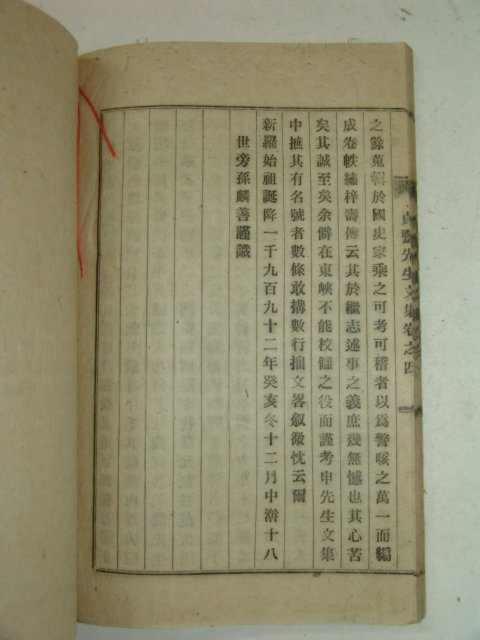 之餘蒐輯於國史家乘之可考可稽者以爲謦咳之萬一而編
成卷帙繡梓壽傳云其於繼志述事之義庶幾無憾也其心苦
矣其誠至矣余僻在東峽不能校讎之役而謹考申先生文集
中摭其有名號者數條敢搆數行拙文畧叙微忱云爾
新羅始祖誕降一千九百九十二年癸亥冬十二月中澣十八
世旁孫麟善謹識
先生文集卷之四